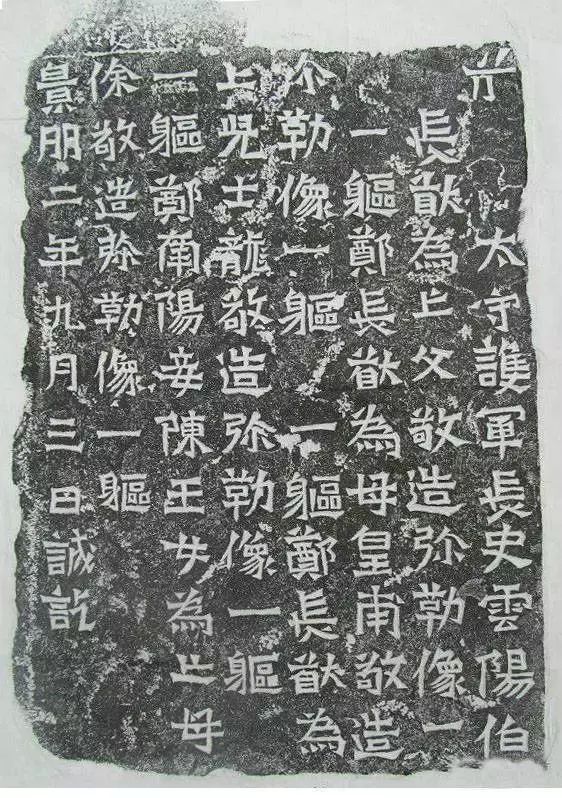 太守護軍長史雲陽伯
長猷為亡父敬造弥勒像一
一軀鄭長猷為母皇甫敬造
弥勒像一軀一軀鄭長猷為
亡兒士龍敬造弥勒像一軀
一軀鄭南陽妾陳玉女為亡母
徐敬造弥勒像一軀
景明二年九月三日誠訖